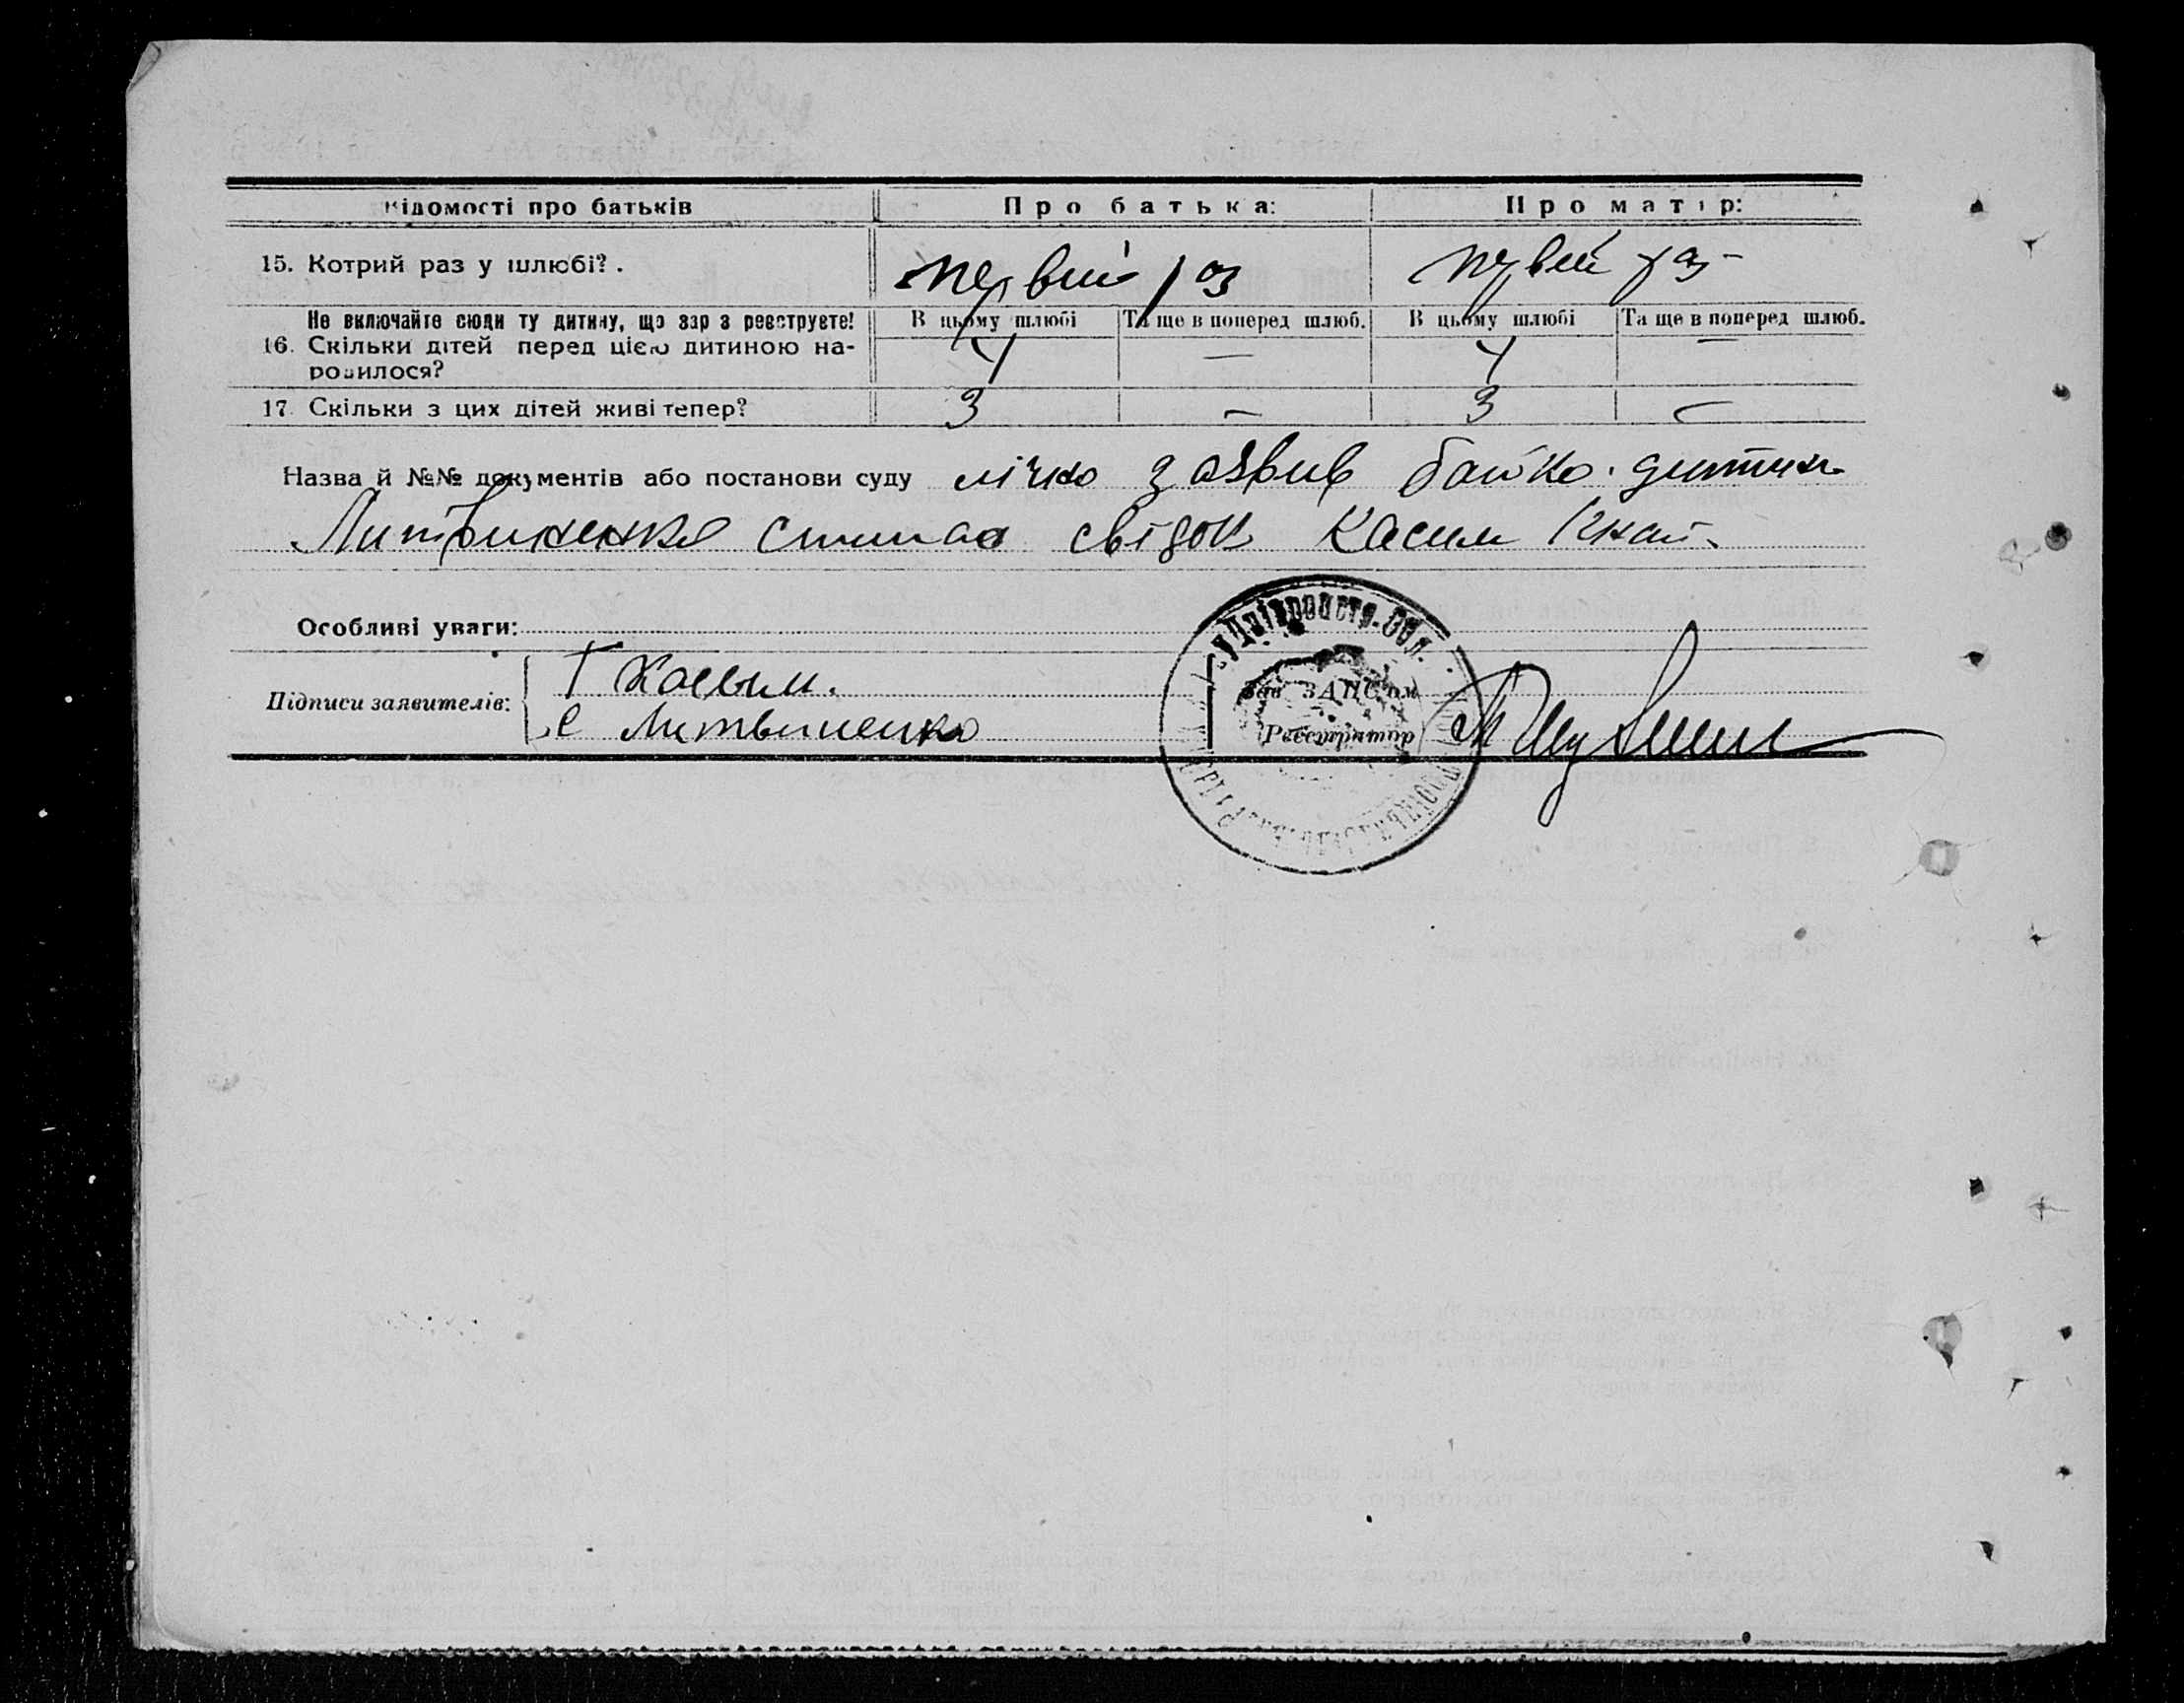 відомості про батьків Про батька: Про матір:
15. Котрий раз у шлюбі?. первий раз первий раз
Не включайте сюди ту дитину, що зар з реєструєте! В цьому шлюбі Та ще в поперед шлюб. В цьому шлюбі Та ще в поперед шлюб.
16. Скільки дітей перед цією дитиною на- 4 — 4 —
родилося?
17. Скільки з цих дітей живі тепер? 3 — 3 —
Назва й №№ документів або постанови суду лічно заявив батько дитини
Литвиненко свідок Касим
Особливі уваги:
Підписи заявителів: Г Касьим.
Є Литвиненко
Дніпропетр. Обл.
Зав ЗАПС'ом
Реєстратор